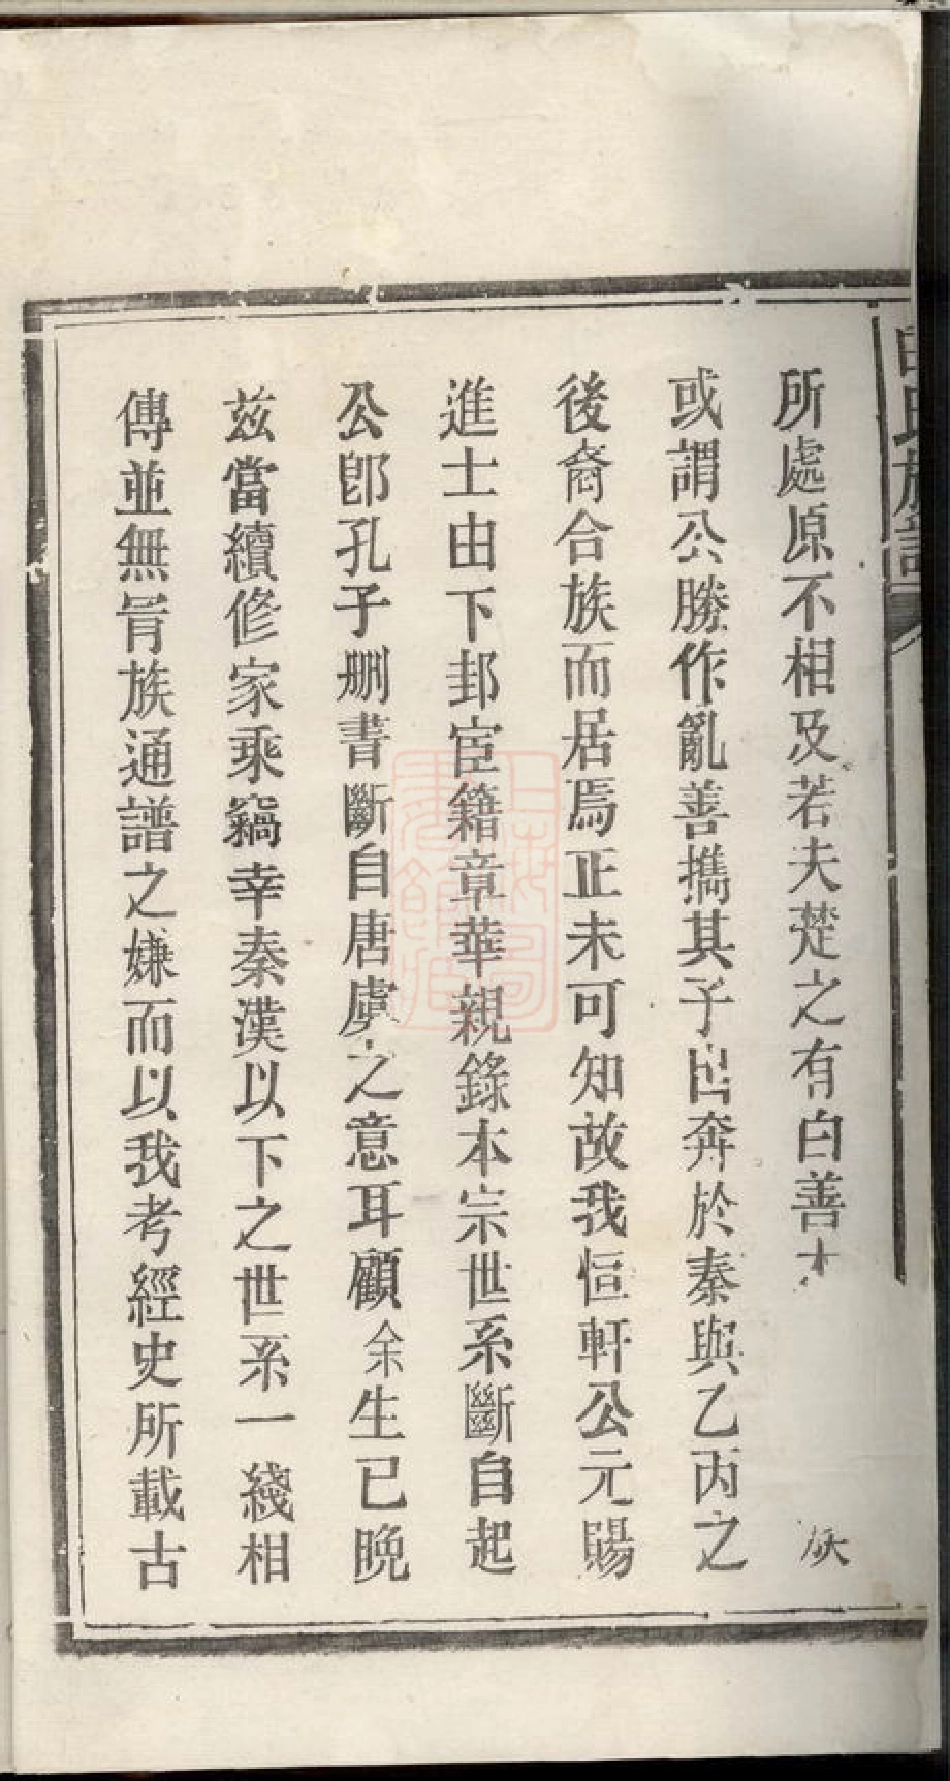 所處原不相及若夫楚之有白善
或謂公勝作亂善攜其子呂奔於秦與乙丙之
後裔合族而居焉正未可知故我恒軒公元賜
進士由下邽宦籍章華親錄本宗世系斷自起
公卽孔子刪書斷自唐虞之意耳顧余生已晚
茲當續修家乘竊幸秦漢以下之世系一綫相
傳並無冐族通譜之嫌而以我考經史所載古
氏族譜
上海圖書館藏